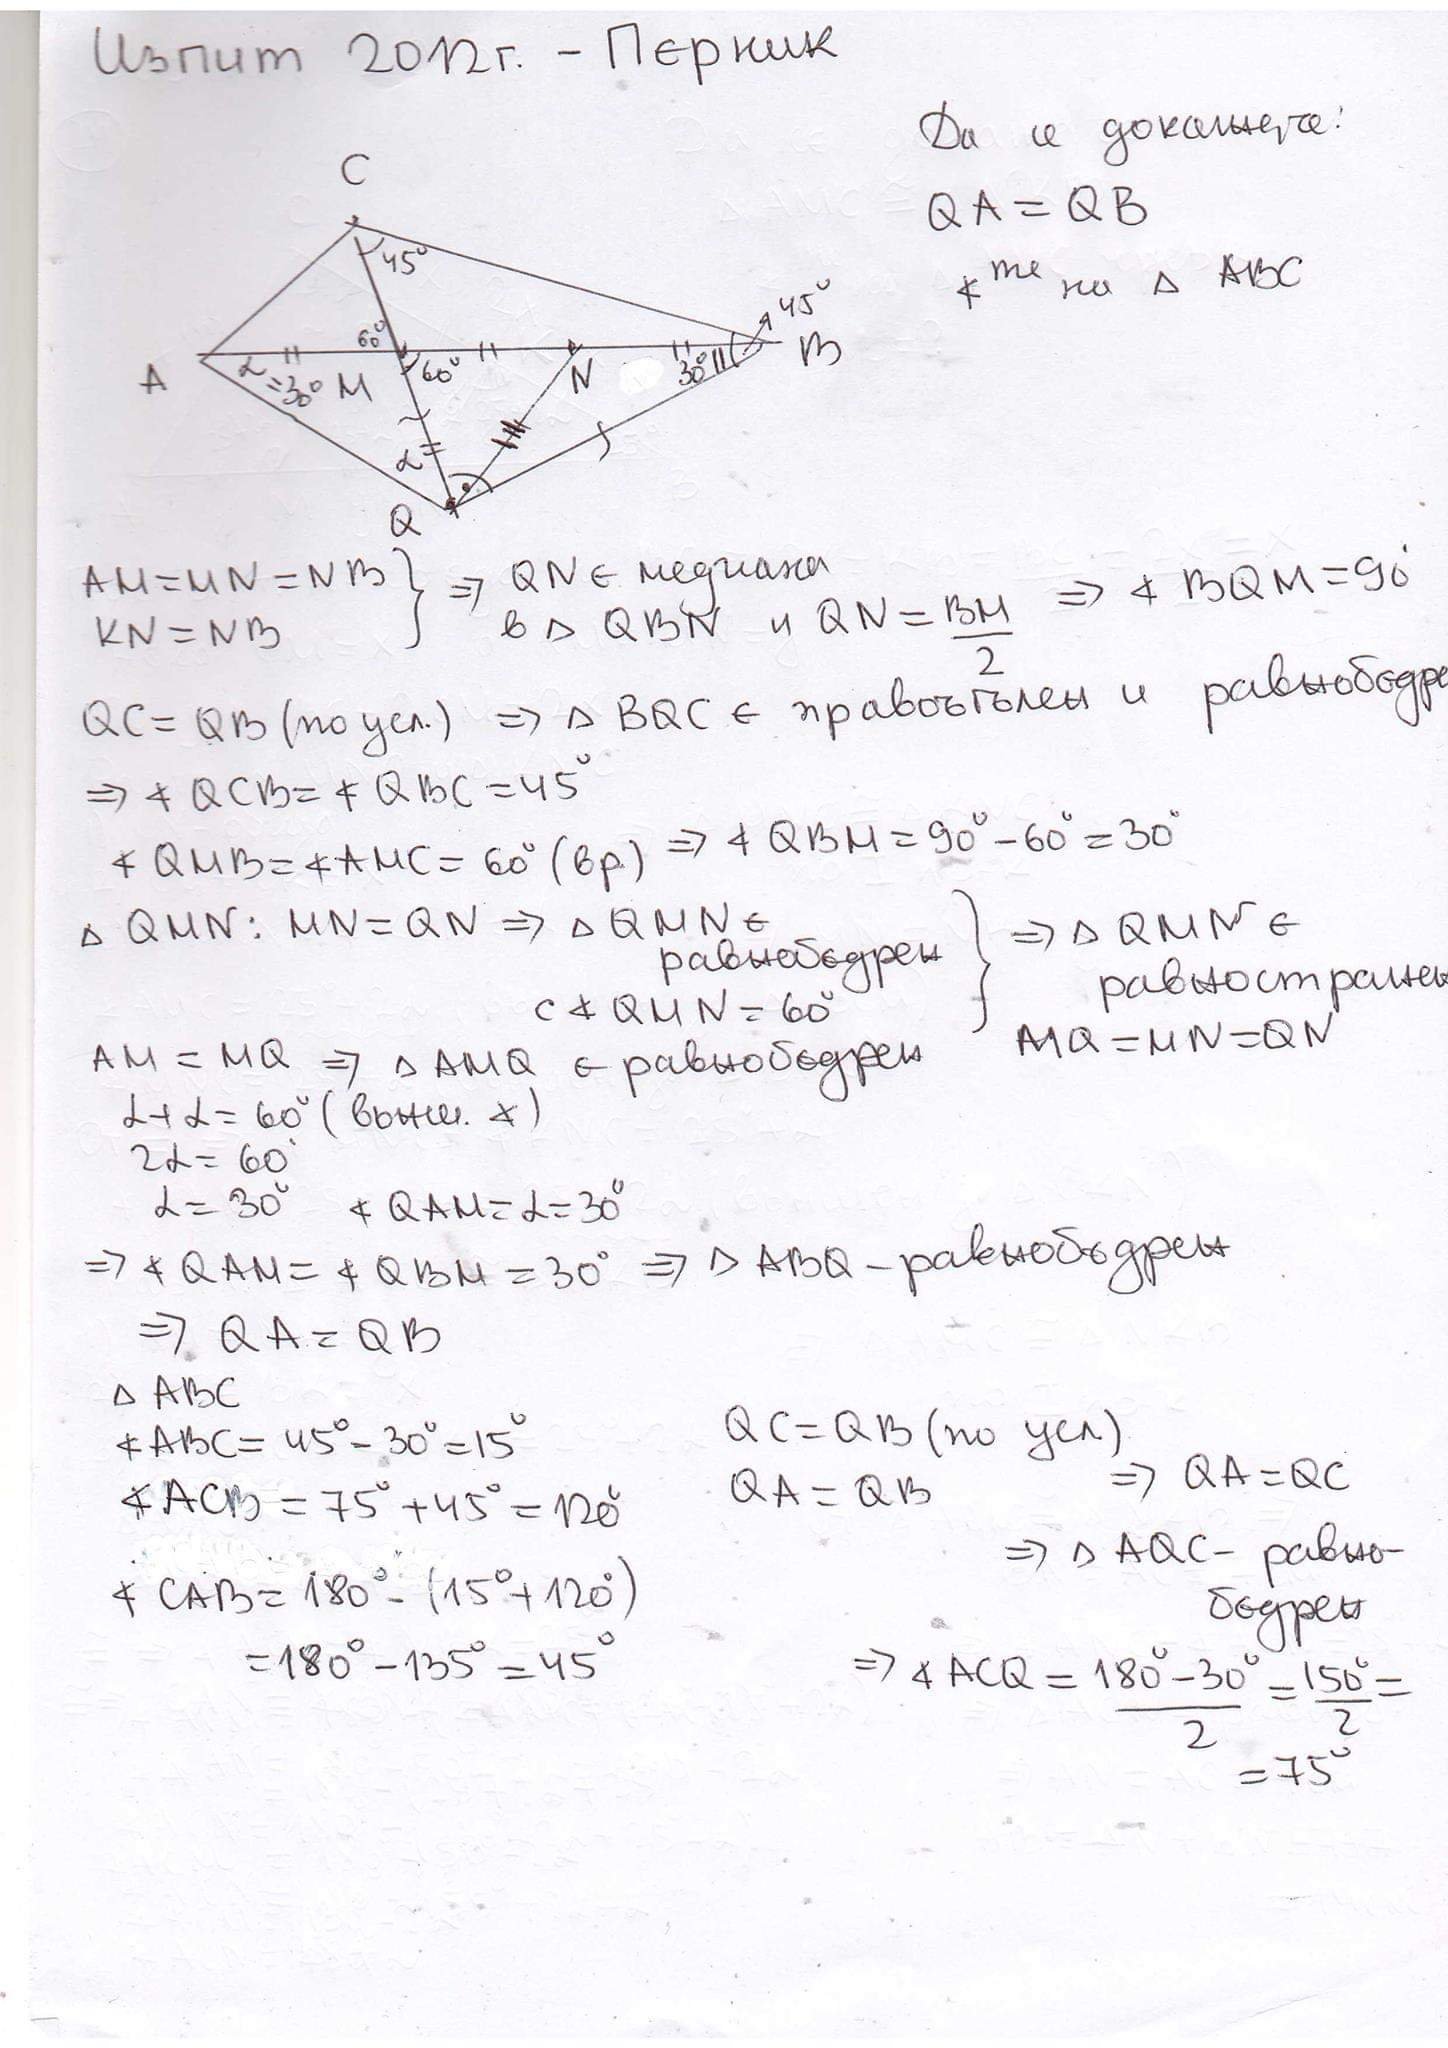 Изпит 2012г. - Перник
Да се докаже, че:
QA = QB
∢те на △ ABC
C
45°
45°
60°
A
α = 30°
M
60°
N
30°
B
α
Q
AM = MN = NB
KN = NB
} ⇒ QN е медиана
в △ QBN и QN = BM/2 ⇒ ∢ BQM = 90°
QC = QB (по усл.) ⇒ △ BQC е правоъгълен и равнобедре
⇒ ∢ QCB = ∢ QBC = 45°
∢ QMB = ∢ AMC = 60° (вр.) ⇒ ∢ QBM = 90° - 60° = 30°
△ QMN: MN = QN ⇒ △ QMN е
равнобедрен
с ∢ QMN = 60°
} ⇒ △ QMN е
равностранен
MQ = MN = QN
AM = MQ ⇒ △ AMQ е равнобедрен
α + α = 60° (външ. ∢)
2α = 60°
α = 30° ∢ QAM = α = 30°
⇒ ∢ QAM = ∢ QBM = 30° ⇒ △ ABQ - равнобедрен
⇒ QA = QB
△ ABC
∢ ABC = 45° - 30° = 15°
∢ ACB = 75° + 45° = 120°
∢ CAB = 180° - (15° + 120°)
= 180° - 135° = 45°
QC = QB (по усл)
QA = QB ⇒ QA = QC
⇒ △ AQC - равно-
бедрен
⇒ ∢ ACQ = 180° - 30° / 2 = 150° / 2 =
= 75°